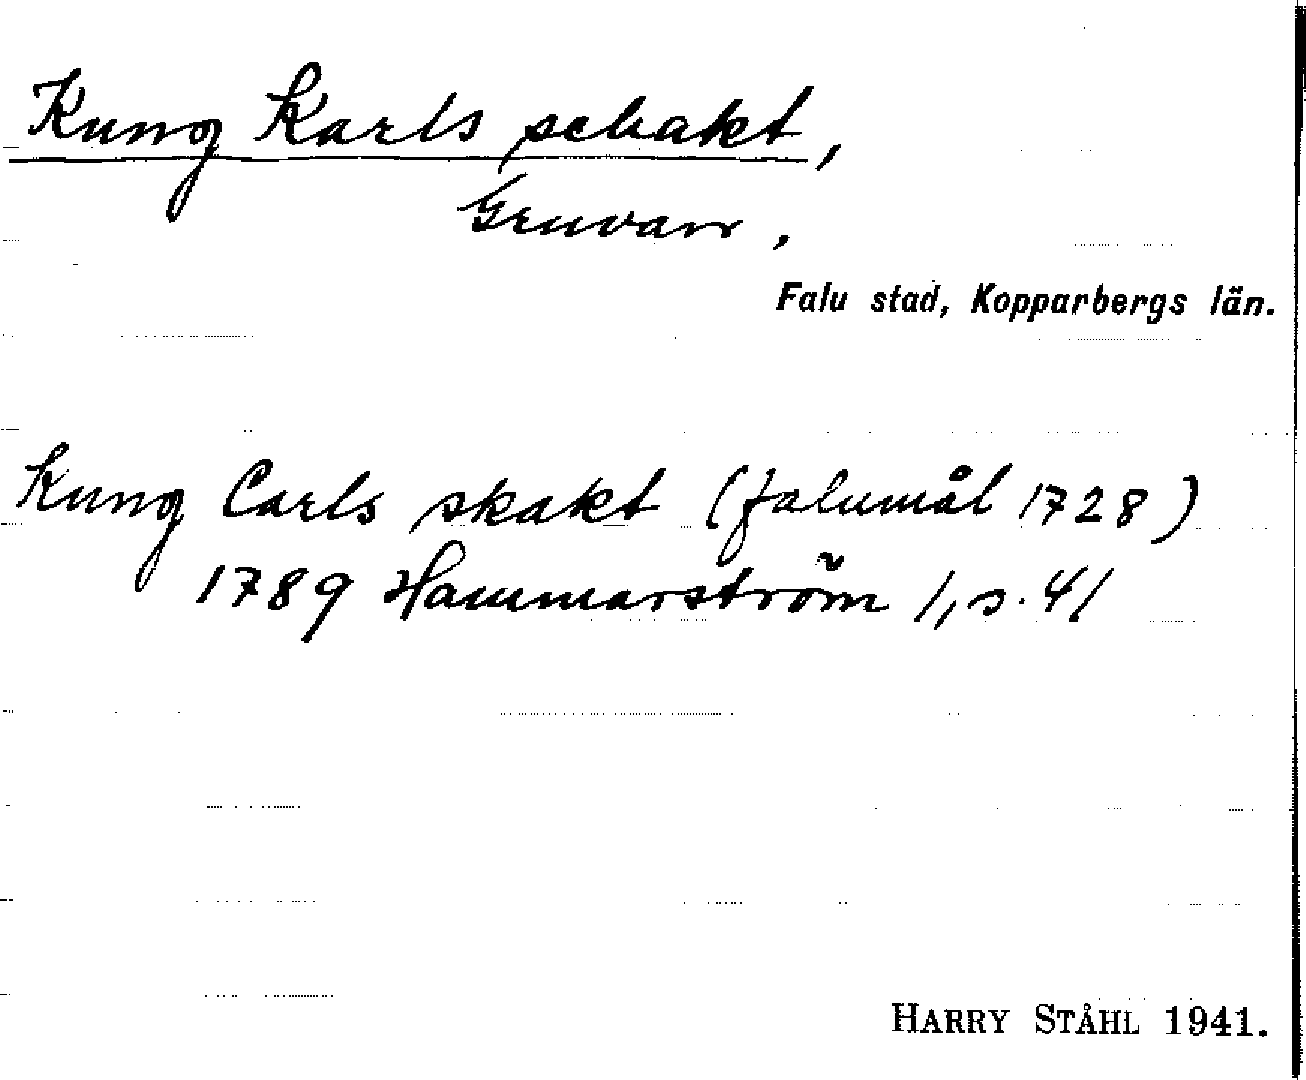 Kung Karls schakt,
Gruvan,
Falu stad, Kopparbergs län.
Kung Carls skakt (falumål 1728)
1789 Hammarström 1, s. 41
HARRY STÅHL 1941.